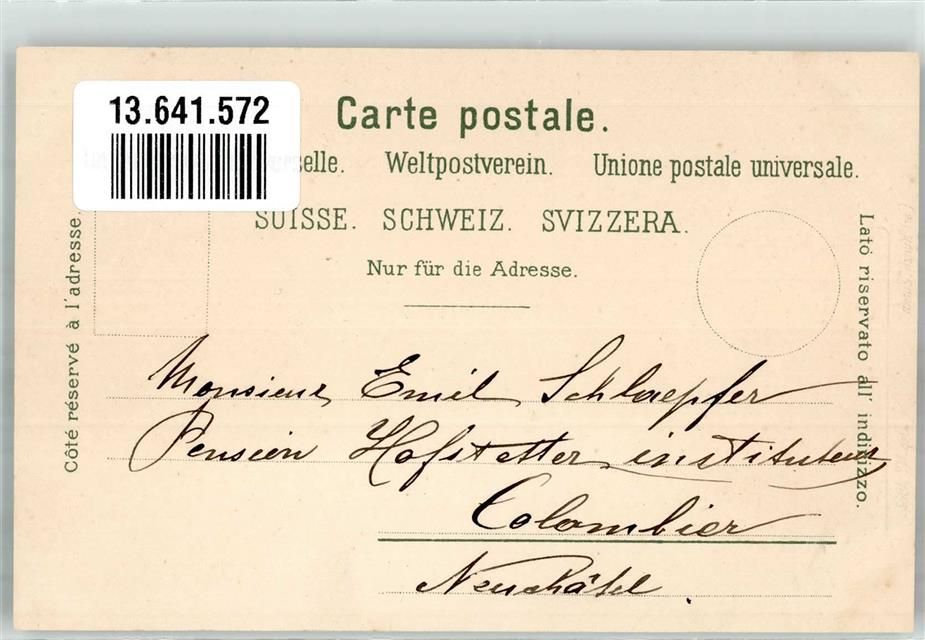 13.641.572
Carte postale.
Weltpostverein. Unione postale universale.
SUISSE. SCHWEIZ. SVIZZERA.
Nur für die Adresse.
Côté réservé à l'adresse.
Lato riservato all' indirizzo.
Monsieur Emil Schlaepfer
Pension Hofstetter, instituteur
Colombier
Neuchâtel.